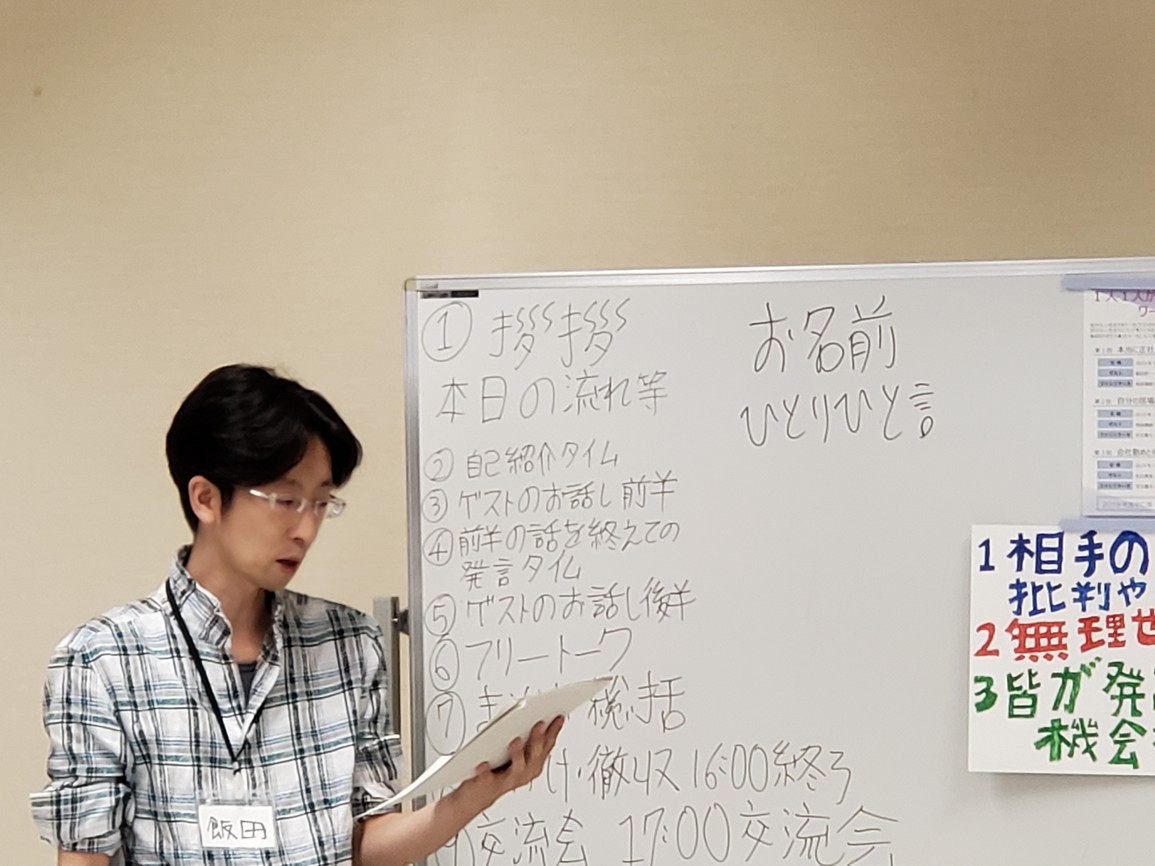 ① 挨拶挨拶
本日の流れ等
② 自己紹介タイム
③ ゲストのお話し前半
④ 前半の話を終えての
発言タイム
⑤ ゲストのお話し後半
⑥ フリートーク
⑦ 総括
徹収 16:00終了
交流会 17:00交流会
お名前
ひとりひと言
1人1人が
ワー
1 相手の
批判や
2 無理
3 皆が発
機会
飯田